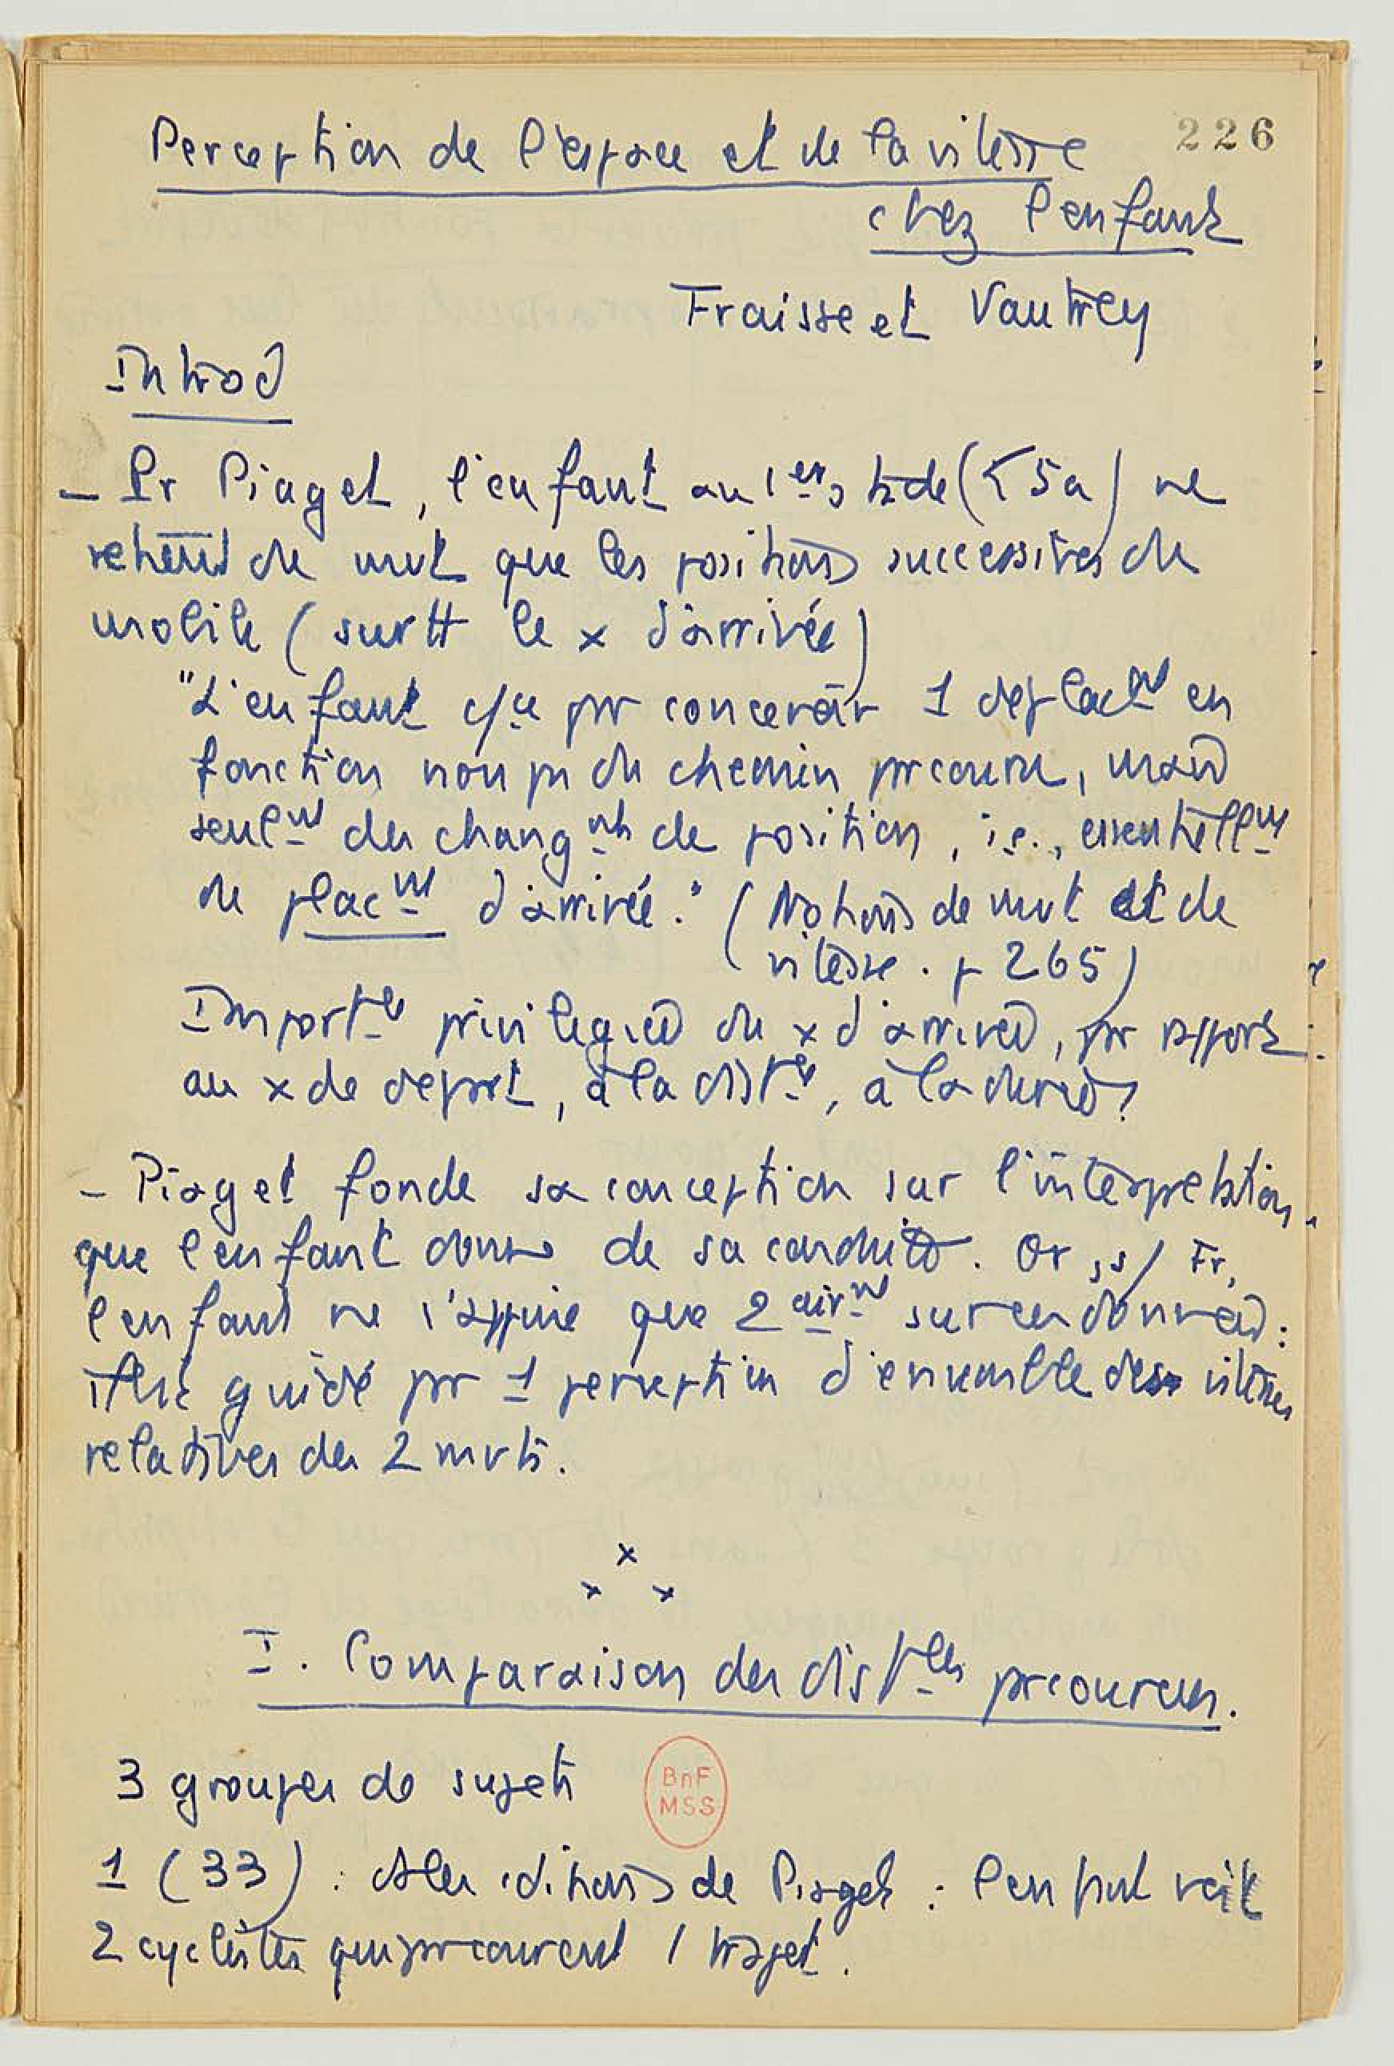 226
Perception de l'espace et de la vitesse
chez l'enfant
Fraisse et Vautrey
Introd
- Pr Piaget, l'enfant au 1er stade (< 5a) ne
retient du mvt que les positions successives du
mobile (surtt le x d'arrivée)
"L'enfant c/ce par concevoir 1 déplacnt en
fonction non pas du chemin parcouru, mais
seulnt des changnts de position, i.e., essentiellnt
du placnt d'arrivée." (Notions de mvt et de
vitesse. p 265)
Importce privilégiée du x d'arrivée, par rapport
au x de départ, à la distce, à la durée?
- Piaget fonde sa conception sur l'interprétation
que l'enfant donne de sa conduite. Or, s/ Fr,
l'enfant ne s'appuie que 2airnt sur ces données:
guidé par 1 perception d'ensemble des vitesses
relatives des 2 mvts.
x
x x
I. Comparaison des distces parcourues.
3 groupes de sujets
BnF
MSS
1 (33) : ds les cditions de Piaget : l'enfant voit
2 cyclistes qui parcourent 1 trajet.